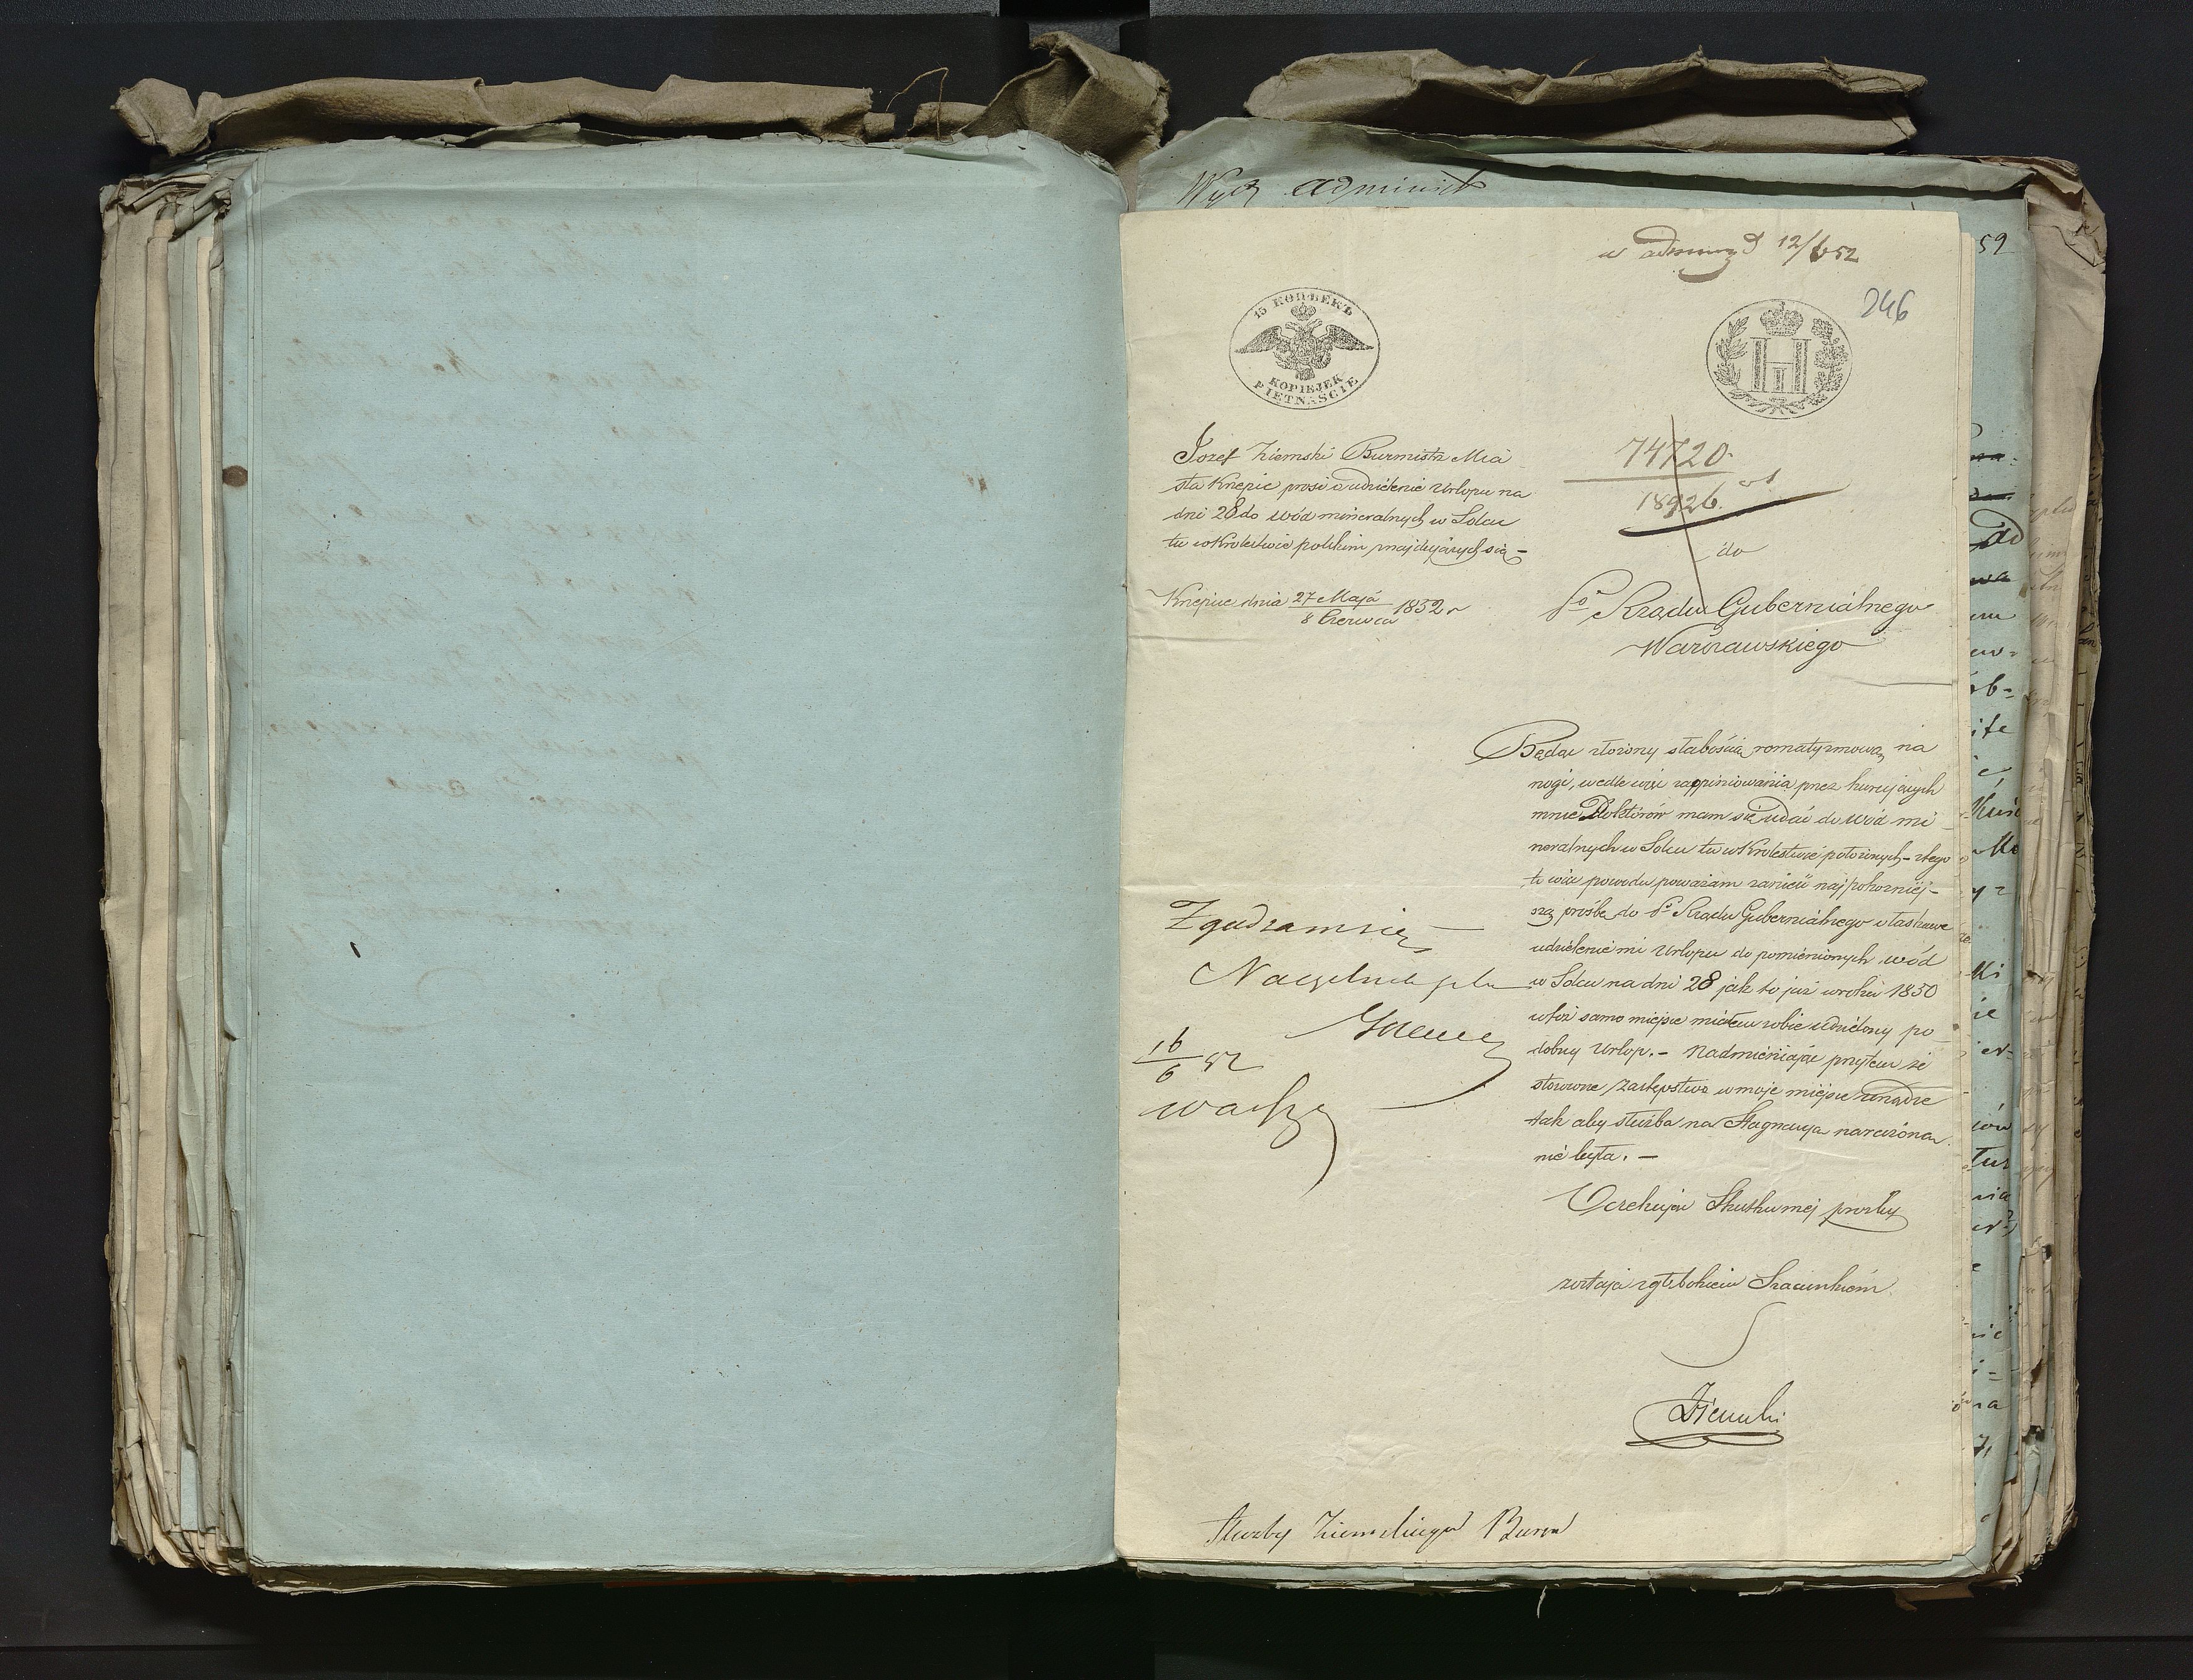 Wydz administr
w adminz d 12/6 52
15 КОПѢЕКЪ
KOPIEJEK
PIETNAŚCIE
H I
246
59
Jozef Ziemski Burmistrz Mia
sta Knépic prosi o udzielenie Urlopu na
dni 28 do wód mineralnych w Solcu
tu w Krolestwie polskim znajdujących się –
Knépice dnia 27 Maja / 8 Czerwca 1852 r
74720
18926
do
Rządu Gubernialnego
Warszawskiego
Będąc złożony słabością romatyzmową na
nogi, wedle więc zaopiniowania przez kurujących
mnie Doktorów mam się udać do wód mi
neralnych w Solcu tu w Krolestwie położonych – z tego
to więc powodu poważam zanieść najpokorniej-
szą prośbę do Rządu Gubernialnego o łaskawe
udzielenie mi Urlopu do pomienionych wód
w Solcu na dni 28 jak to już w roku 1850
w toż samo miejsce miałem sobie udzielony po
dobny Urlop. – Nadmieniając przytem że
stosowne zastępstwo w moje miejsce urządzę
tak aby służba na Stagnacyą narażona
nie była. –
Oczekując Skutku mej prosby
zostaję z głębokiem Szacunkiem
Ziemski
Zgadzam się
Naczelnik
16/6 52
Służby Ziemskiego Burm